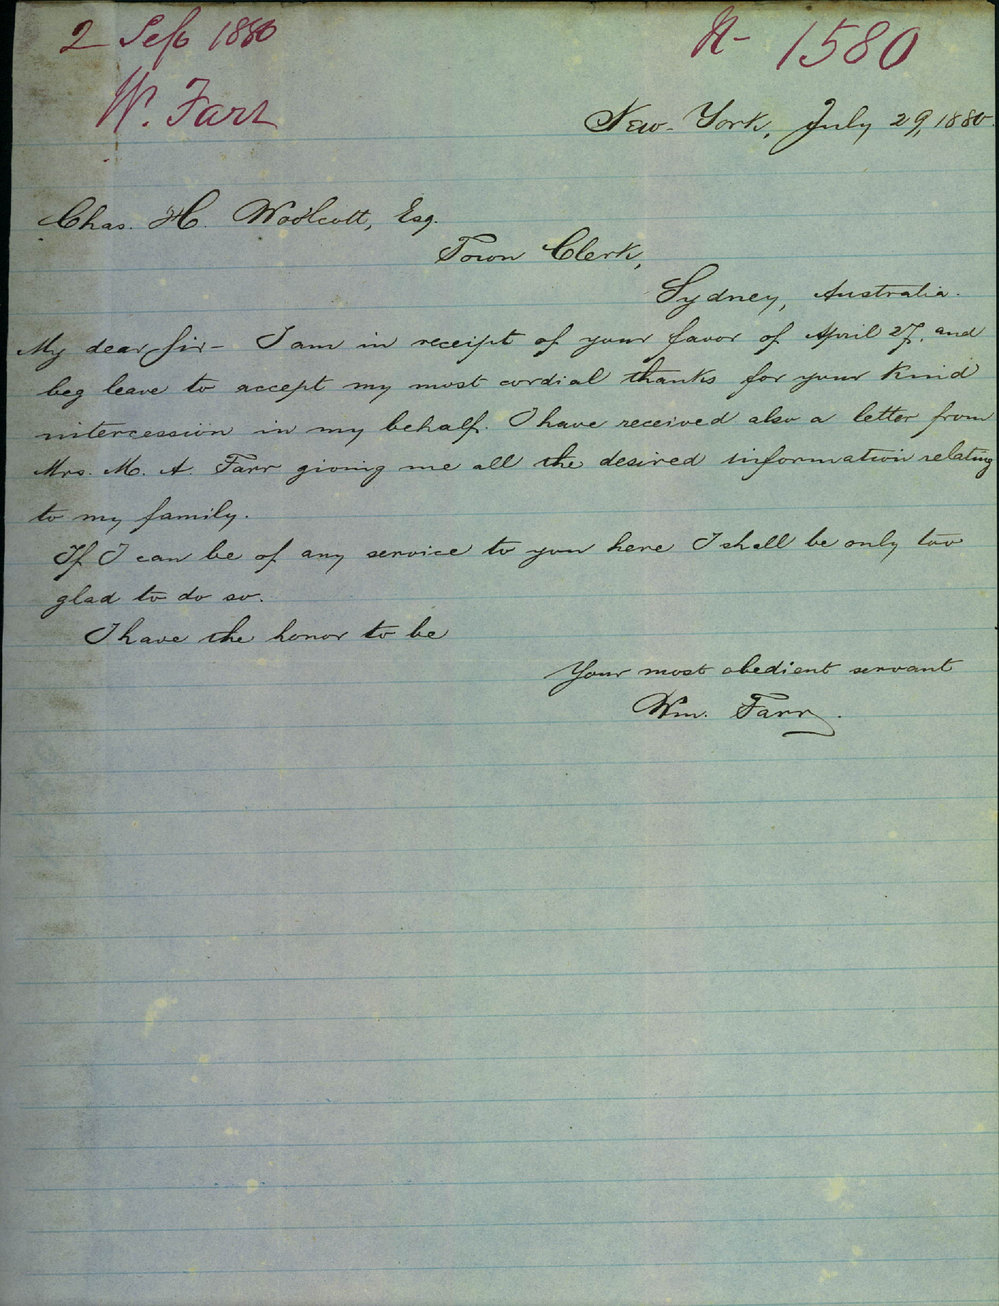 2 Sept 1880
N- 1580
W. Farr
New-York, July 29, 1880.
Chas. H. Woolcott, Esq.
Town Clerk,
Sydney, Australia.
My dear Sir- I am in receipt of your favor of April 27, and
beg leave to accept my most cordial thanks for your kind
intercession in my behalf. I have received also a letter from
Mrs. M. A. Farr giving me all the desired information relating
to my family.
If I can be of any service to you here I shall be only too
glad to do so.
I have the honor to be
Your most obedient servant
Wm. Farr.